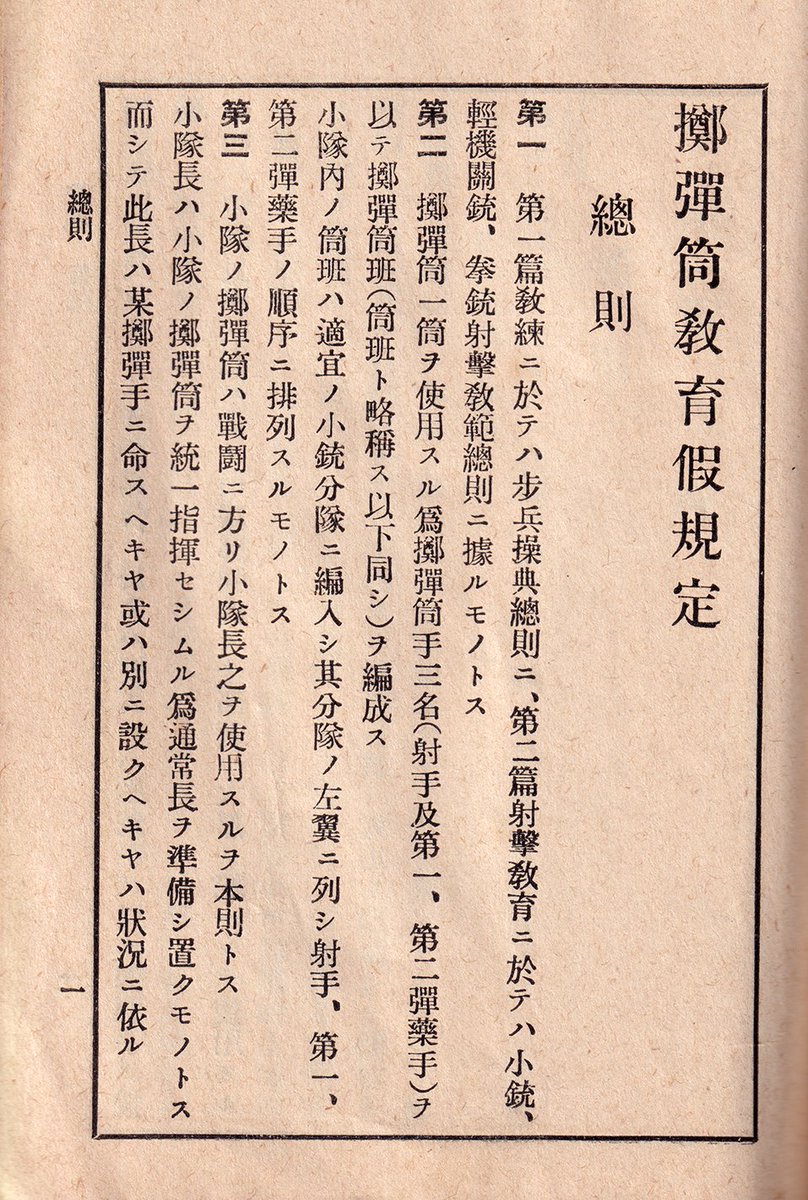 擲彈筒敎育假規定
總則
第一 第一篇敎練ニ於テハ步兵操典總則ニ、第二篇射擊敎育ニ於テハ小銃、
輕機關銃、拳銃射擊敎範總則ニ據ルモノトス
第二 擲彈筒一筒ヲ使用スル爲擲彈筒手三名(射手及第一、第二彈藥手)ヲ
以テ擲彈筒班(筒班ト略稱ス以下同シ)ヲ編成ス
小隊內ノ筒班ハ適宜ノ小銃分隊ニ編入シ其分隊ノ左翼ニ列シ射手、第一、
第二彈藥手ノ順序ニ排列スルモノトス
第三 小隊ノ擲彈筒ハ戰鬪ニ方リ小隊長之ヲ使用スルヲ本則トス
小隊長ハ小隊ノ擲彈筒ヲ統一指揮セシムル爲通常長ヲ準備シ置クモノトス
而シテ此長ハ某擲彈手ニ命スヘキヤ或ハ別ニ設クヘキヤハ狀況ニ依ル
總則
一